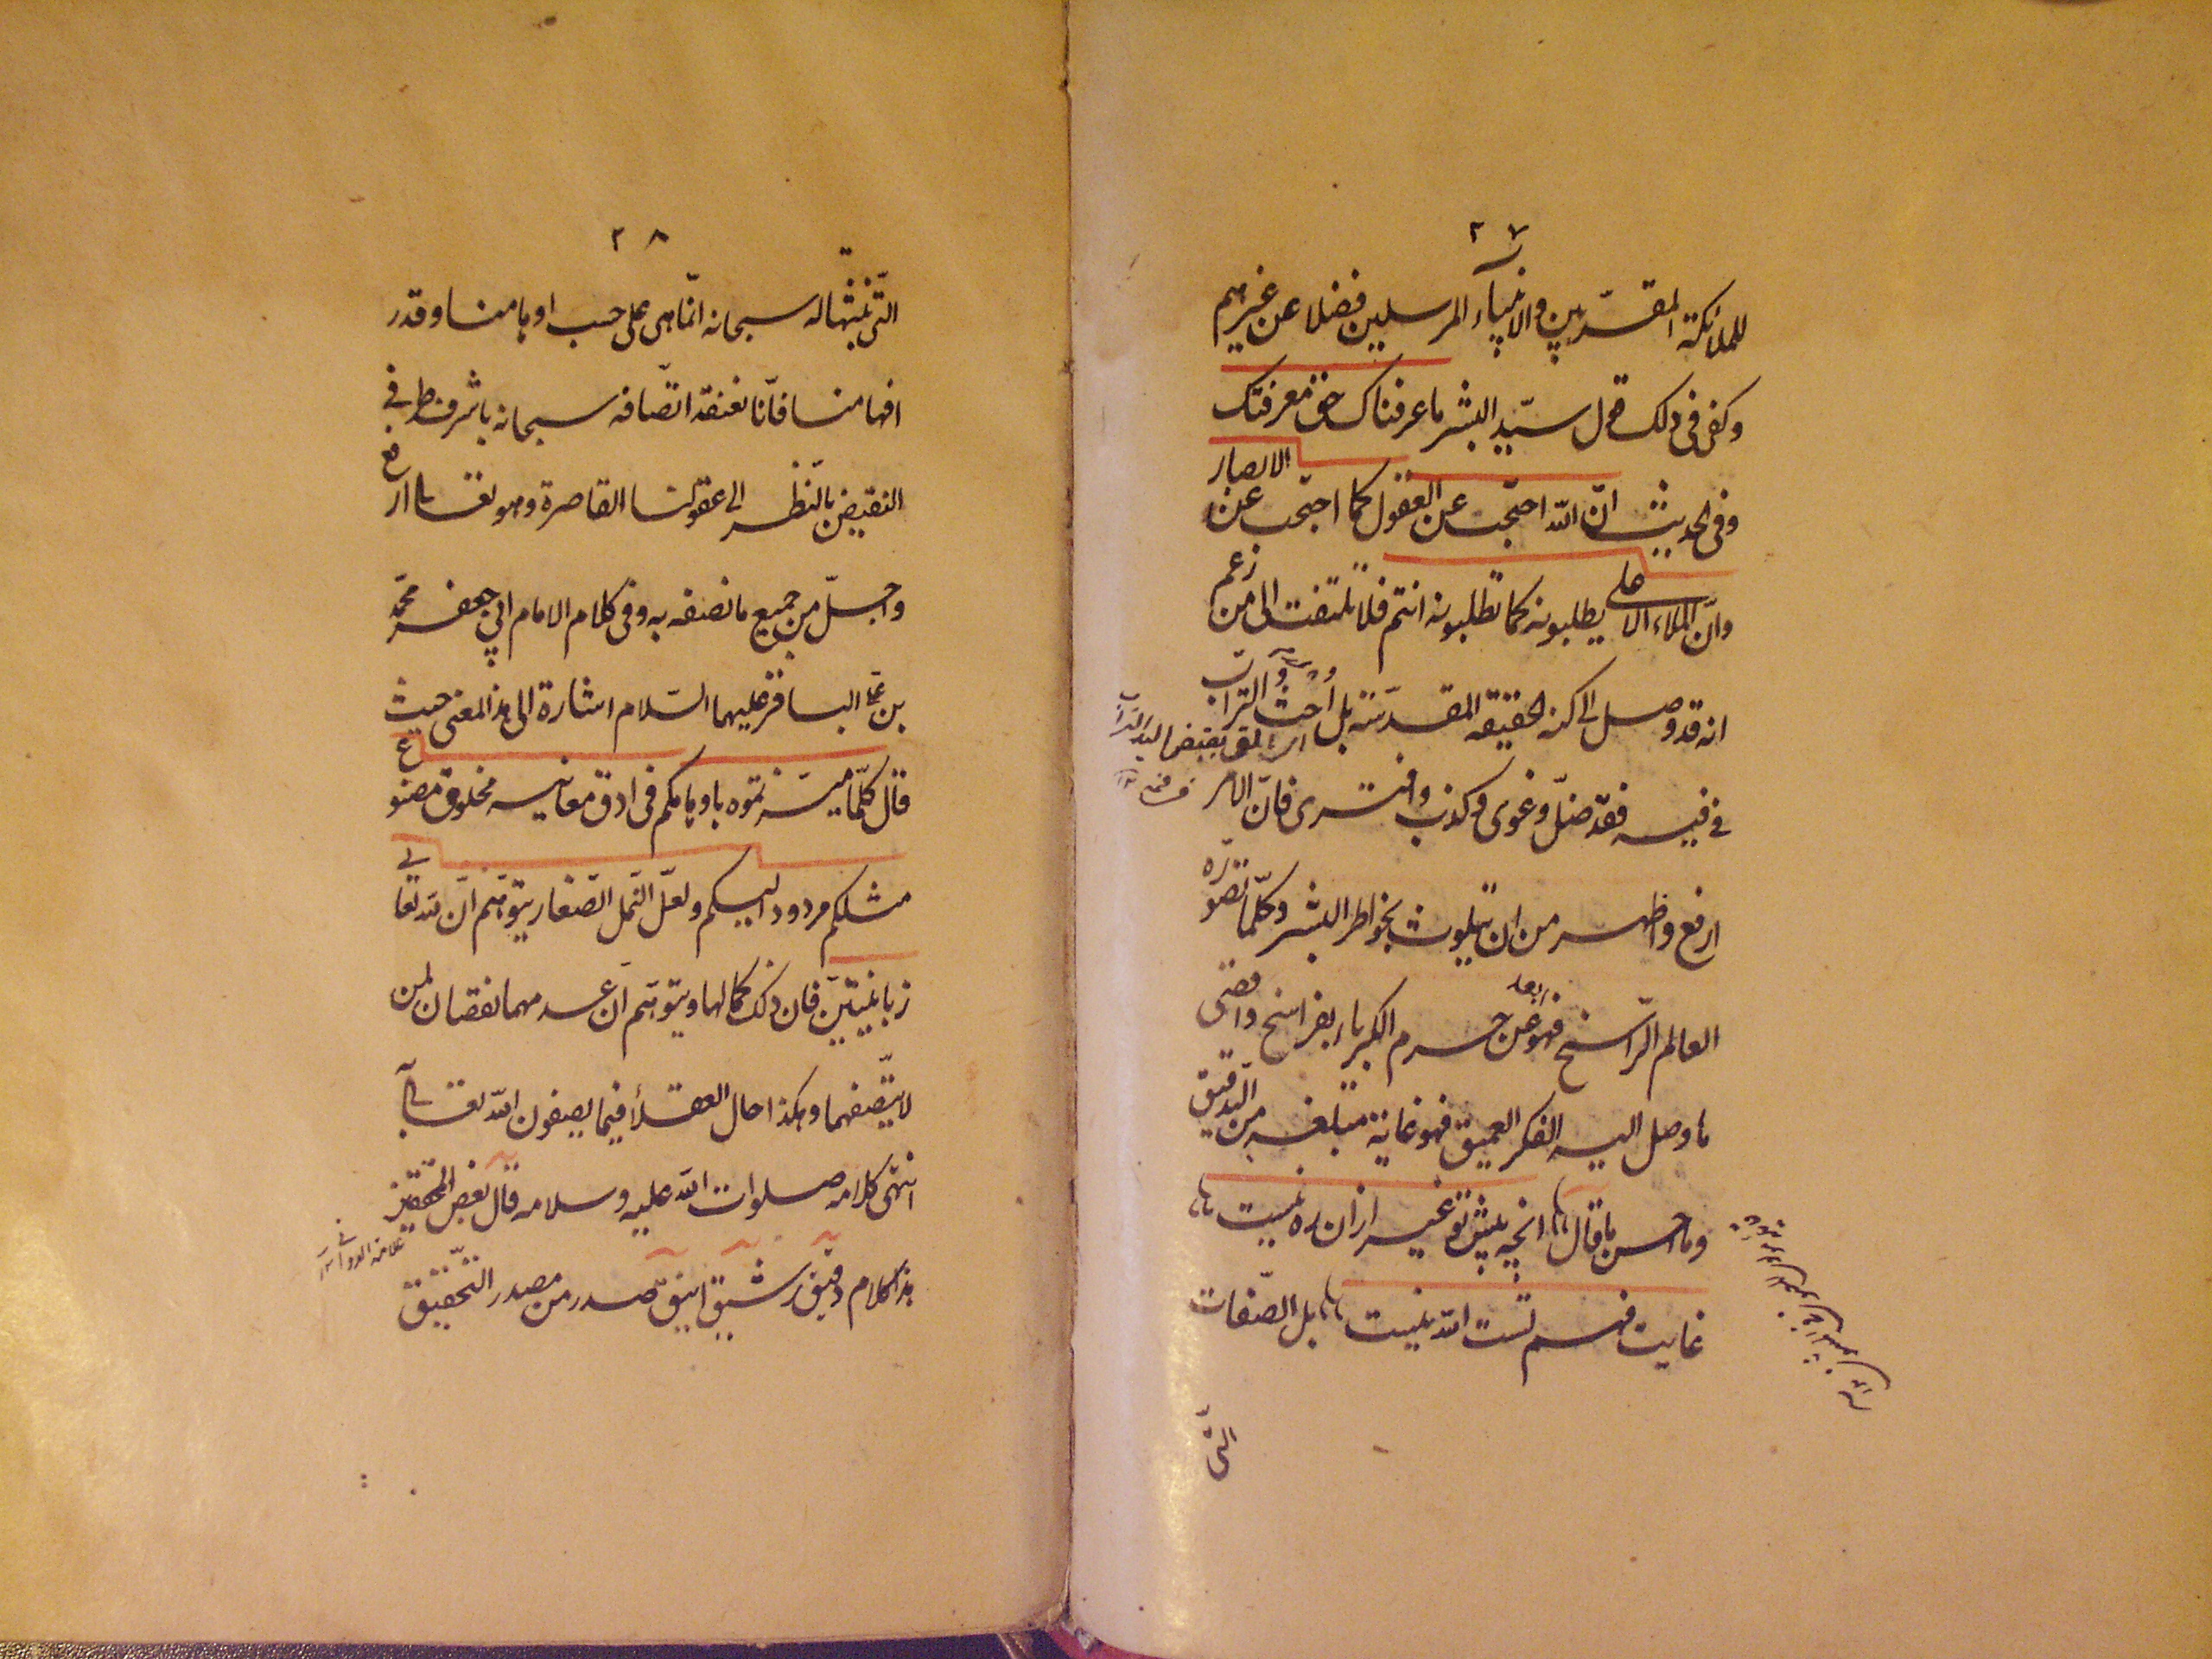 ٢٧
للملائكة المقرّبين والانبيآء المرسلين فضلا عن غيرهم
وكفى فى ذلك قول سيّد البشر ما عرفناك حق معرفتك
وفى الحديث انّ الله احتجب عن العقول كما احتجب عن الابصار
وانّ الملاء الاعلى يطلبونه كما تطلبونه انتم فلا تلتفت الى من زعم
انه قد وصل الى كنه الحقيقة المقدّسة بل أحث التراب
فى فيه فقد ضلّ وغوى وكذب وافترى فانّ الامر
ارفع واظهر من ان يتلوث بخواطر البشر وكلّما تصوّره
العالم الرّاسخ فهو عن حرم الكبرياء بفراسخ واقصى
ما وصل اليه الفكر العميق فهو غاية مبلغه من التّدقيق
وما احسن ما قال انچه پيش تو غير ازان ره نيست
غايت فهم تست الله نيست بل الصّفات
الّتى
٢٨
الّتى نثبتها له سبحانه انّما هى على حسب اوهامنا وقدر
افهامنا فانّا نعتقد اتّصافه سبحانه باشرف طرفى
النقيض بالنّظر الى عقولنا القاصرة وهو تعالى ارفع
واجلّ من جميع ما نصفه به وفى كلام الامام ابي جعفر محمّد
بن على الباقر عليهما السّلام اشارة الى هذا المعنى حيث
قال كلّما ميّزتموه باوهامكم فى ادق معانيه مخلوق مصنوع
مثلكم مردود اليكم ولعلّ النّمل الصّغار يتوهّم انّ لله تعالى
زبانيتين فان ذلك كمالها ويتوهّم انّ عدمهما نقصان لمن
لا يتّصف بهما وهكذا حال العقلآء فيما يصفون الله تعالى به
انتهى كلامه صلوات الله عليه وسلامه قال بعض المحققين
هذا كلام دقيق رشيق انيق صدر من مصدر التّحقيق